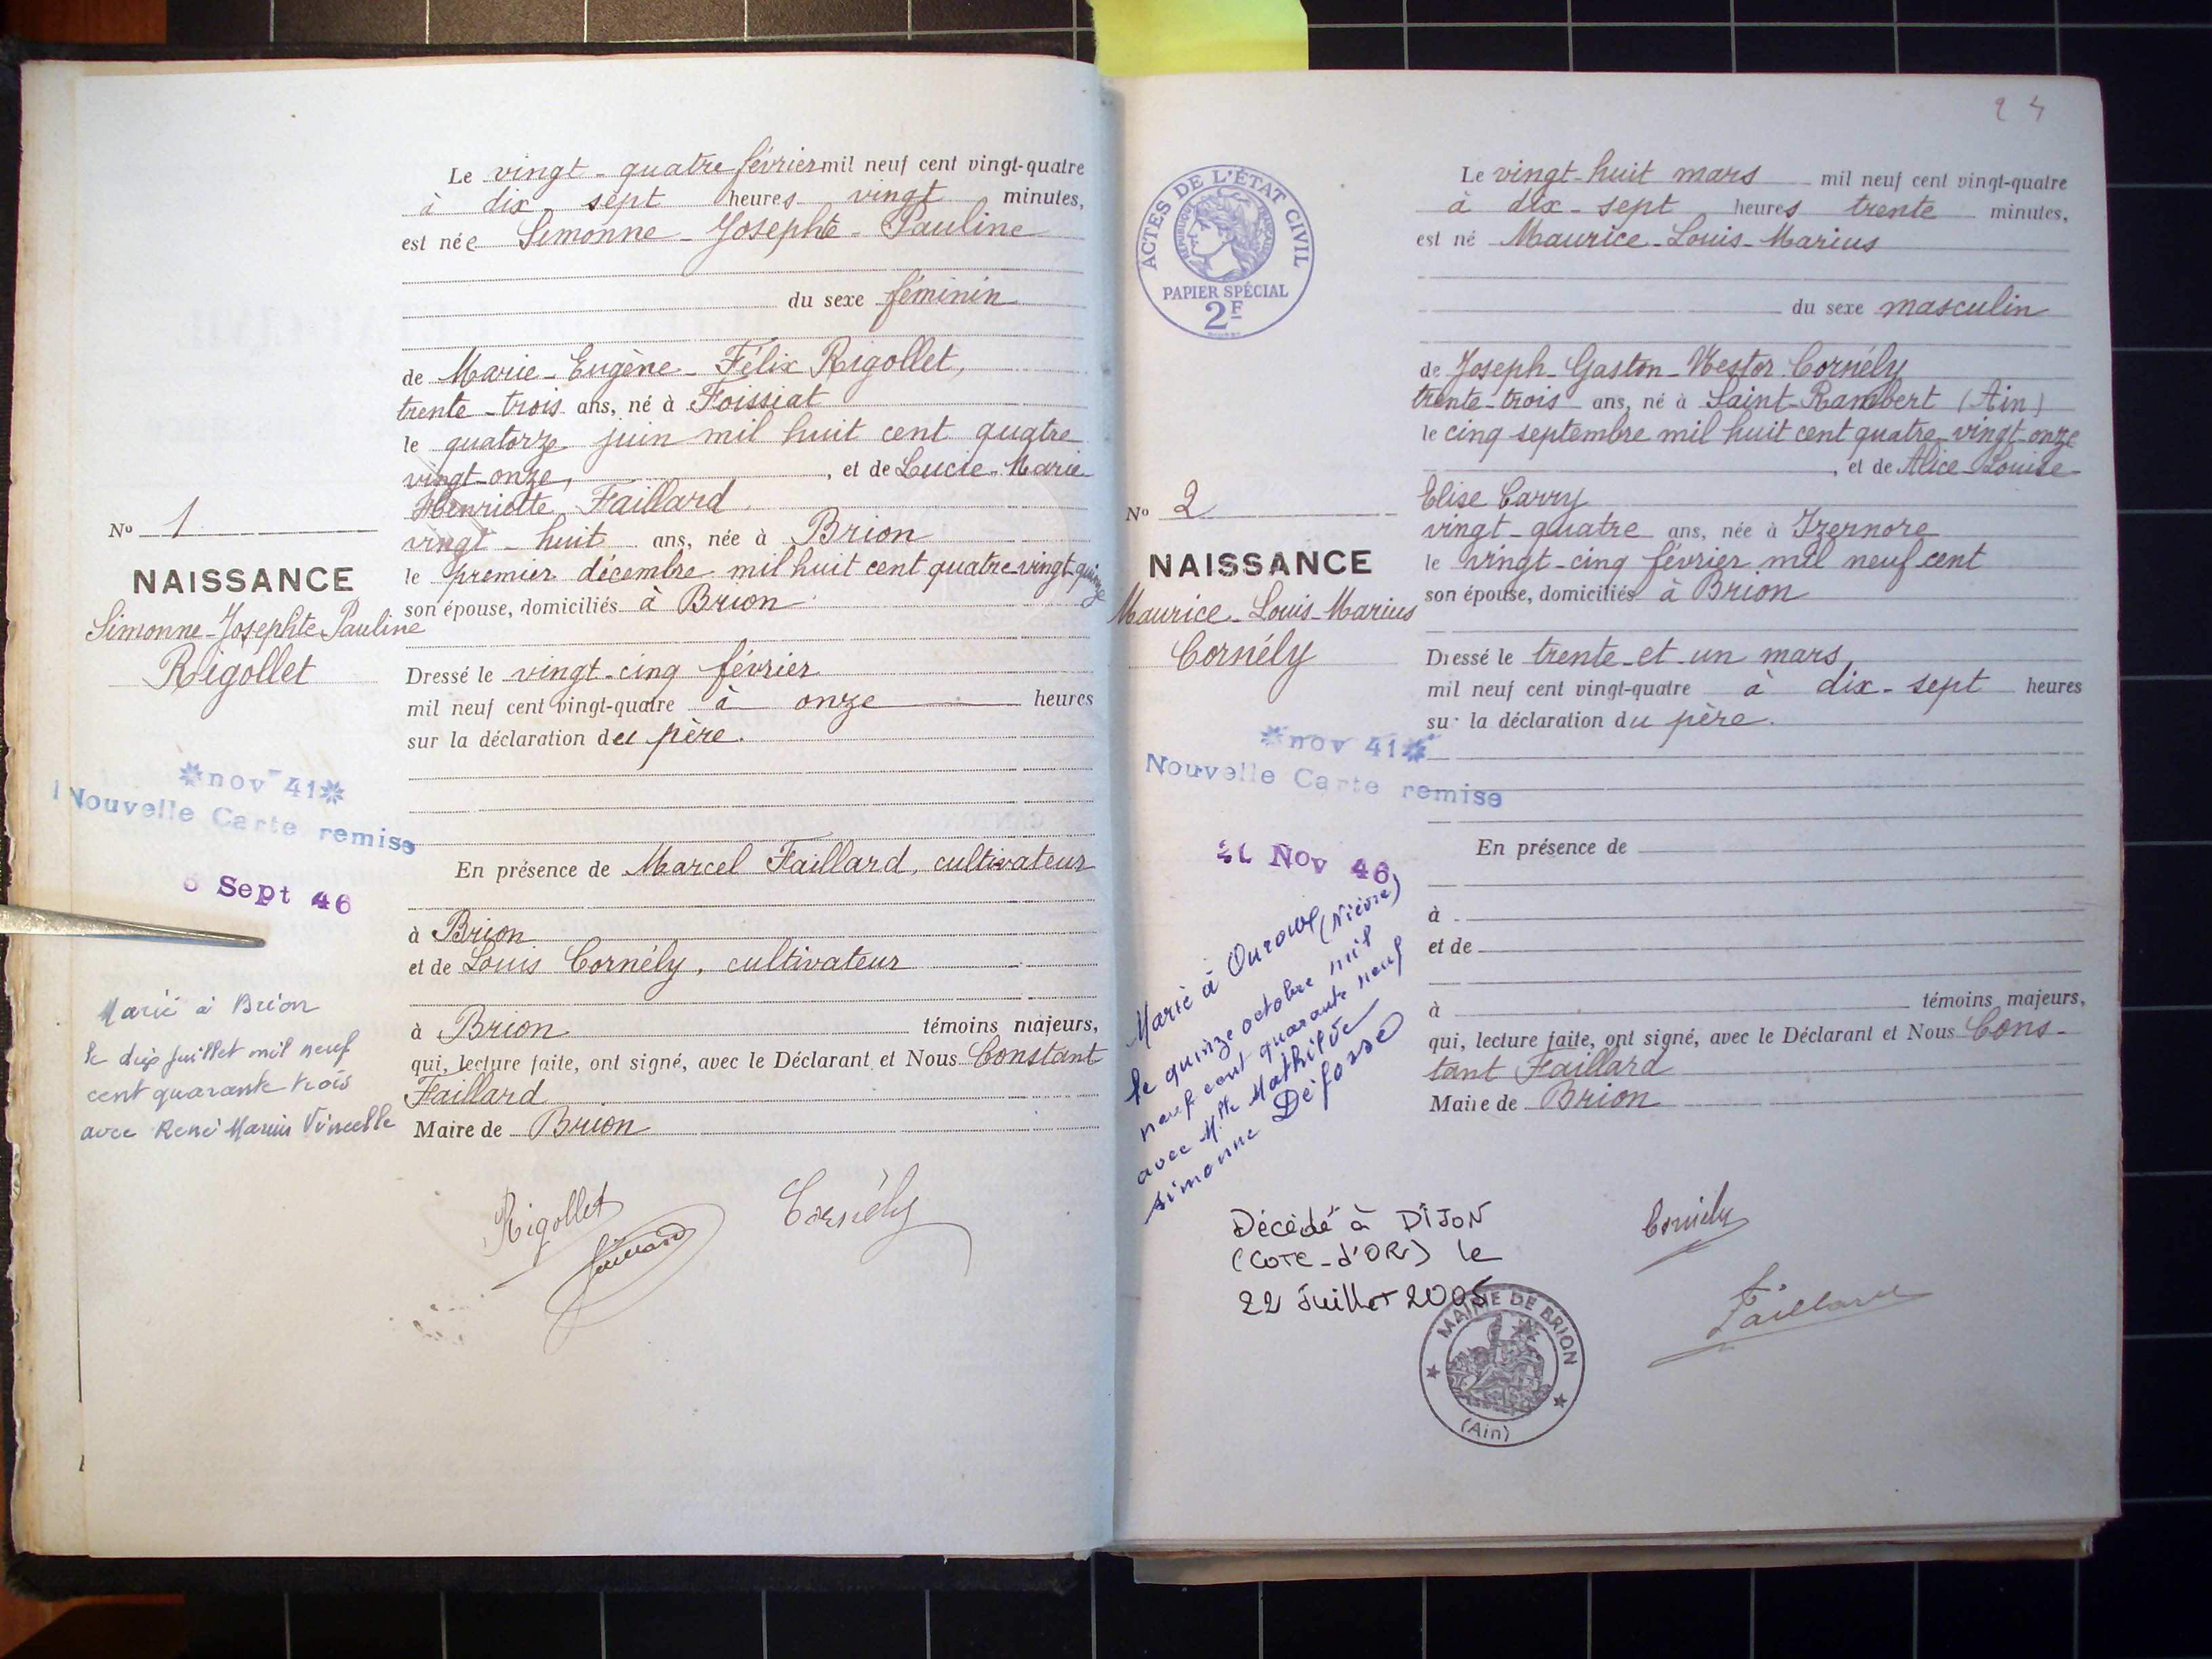 Le vingt-quatre février mil neuf cent vingt-quatre
à dix-sept heures vingt minutes,
est née Simonne-Josephte-Pauline
du sexe féminin
de Marie-Eugène-Félix Rigollet,
trente-trois ans, né à Foissiat
le quatorze juin mil huit cent quatre
vingt-onze, , et de Lucie-Marie
Henriette Faillard
vingt-huit ans, née à Brion
le premier décembre mil huit cent quatre-vingt-quinze
son épouse, domiciliés à Brion
Dressé le vingt-cinq février
mil neuf cent vingt-quatre à onze heures
sur la déclaration du père.
En présence de Marcel Faillard, cultivateur
à Brion
et de Louis Cornély, cultivateur
à Brion témoins majeurs,
qui, lecture faite, ont signé, avec le Déclarant et Nous Constant
Faillard
Maire de Brion
Rigollet
Faillard
Cornély
No 1
NAISSANCE
Simonne-Josephte-Pauline
Rigollet
nov 41
Nouvelle Carte remise
Sept 46
Marié à Brion
le dix juillet mil neuf
cent quarante trois
avec René Marius Vincelle
24
ACTES DE L'ÉTAT CIVIL
RÉPUBLIQUE FRANÇAISE
PAPIER SPÉCIAL
2F
Le vingt-huit mars mil neuf cent vingt-quatre
à dix-sept heures trente minutes,
est né Maurice-Louis-Marius
du sexe masculin
de Joseph-Gaston-Nestor Cornély
trente-trois ans, né à Saint-Rambert (Ain)
le cinq septembre mil huit cent quatre-vingt-onze
, et de Alice-Louise-
Elise Carry
vingt-quatre ans, née à Izernore
le vingt-cinq février mil neuf cent
son épouse, domiciliés à Brion
Dressé le trente-et-un mars
mil neuf cent vingt-quatre à dix-sept heures
sur la déclaration du père.
En présence de
à
et de
à témoins majeurs,
qui, lecture faite, ont signé, avec le Déclarant et Nous Cons-
tant Faillard
Maire de Brion
Cornély
Faillard
No 2
NAISSANCE
Maurice-Louis-Marius
Cornély
nov 41
Nouvelle Carte remise
Nov 46
Marié à Ouroux (Nièvre)
le quinze octobre mil
neuf cent quarante neuf
avec Mlle Mathilde
Simonne Déforse
Décédé à DIJON
(COTE-d'OR) le
22 Juillet 2005
MAIRIE DE BRION
(Ain)